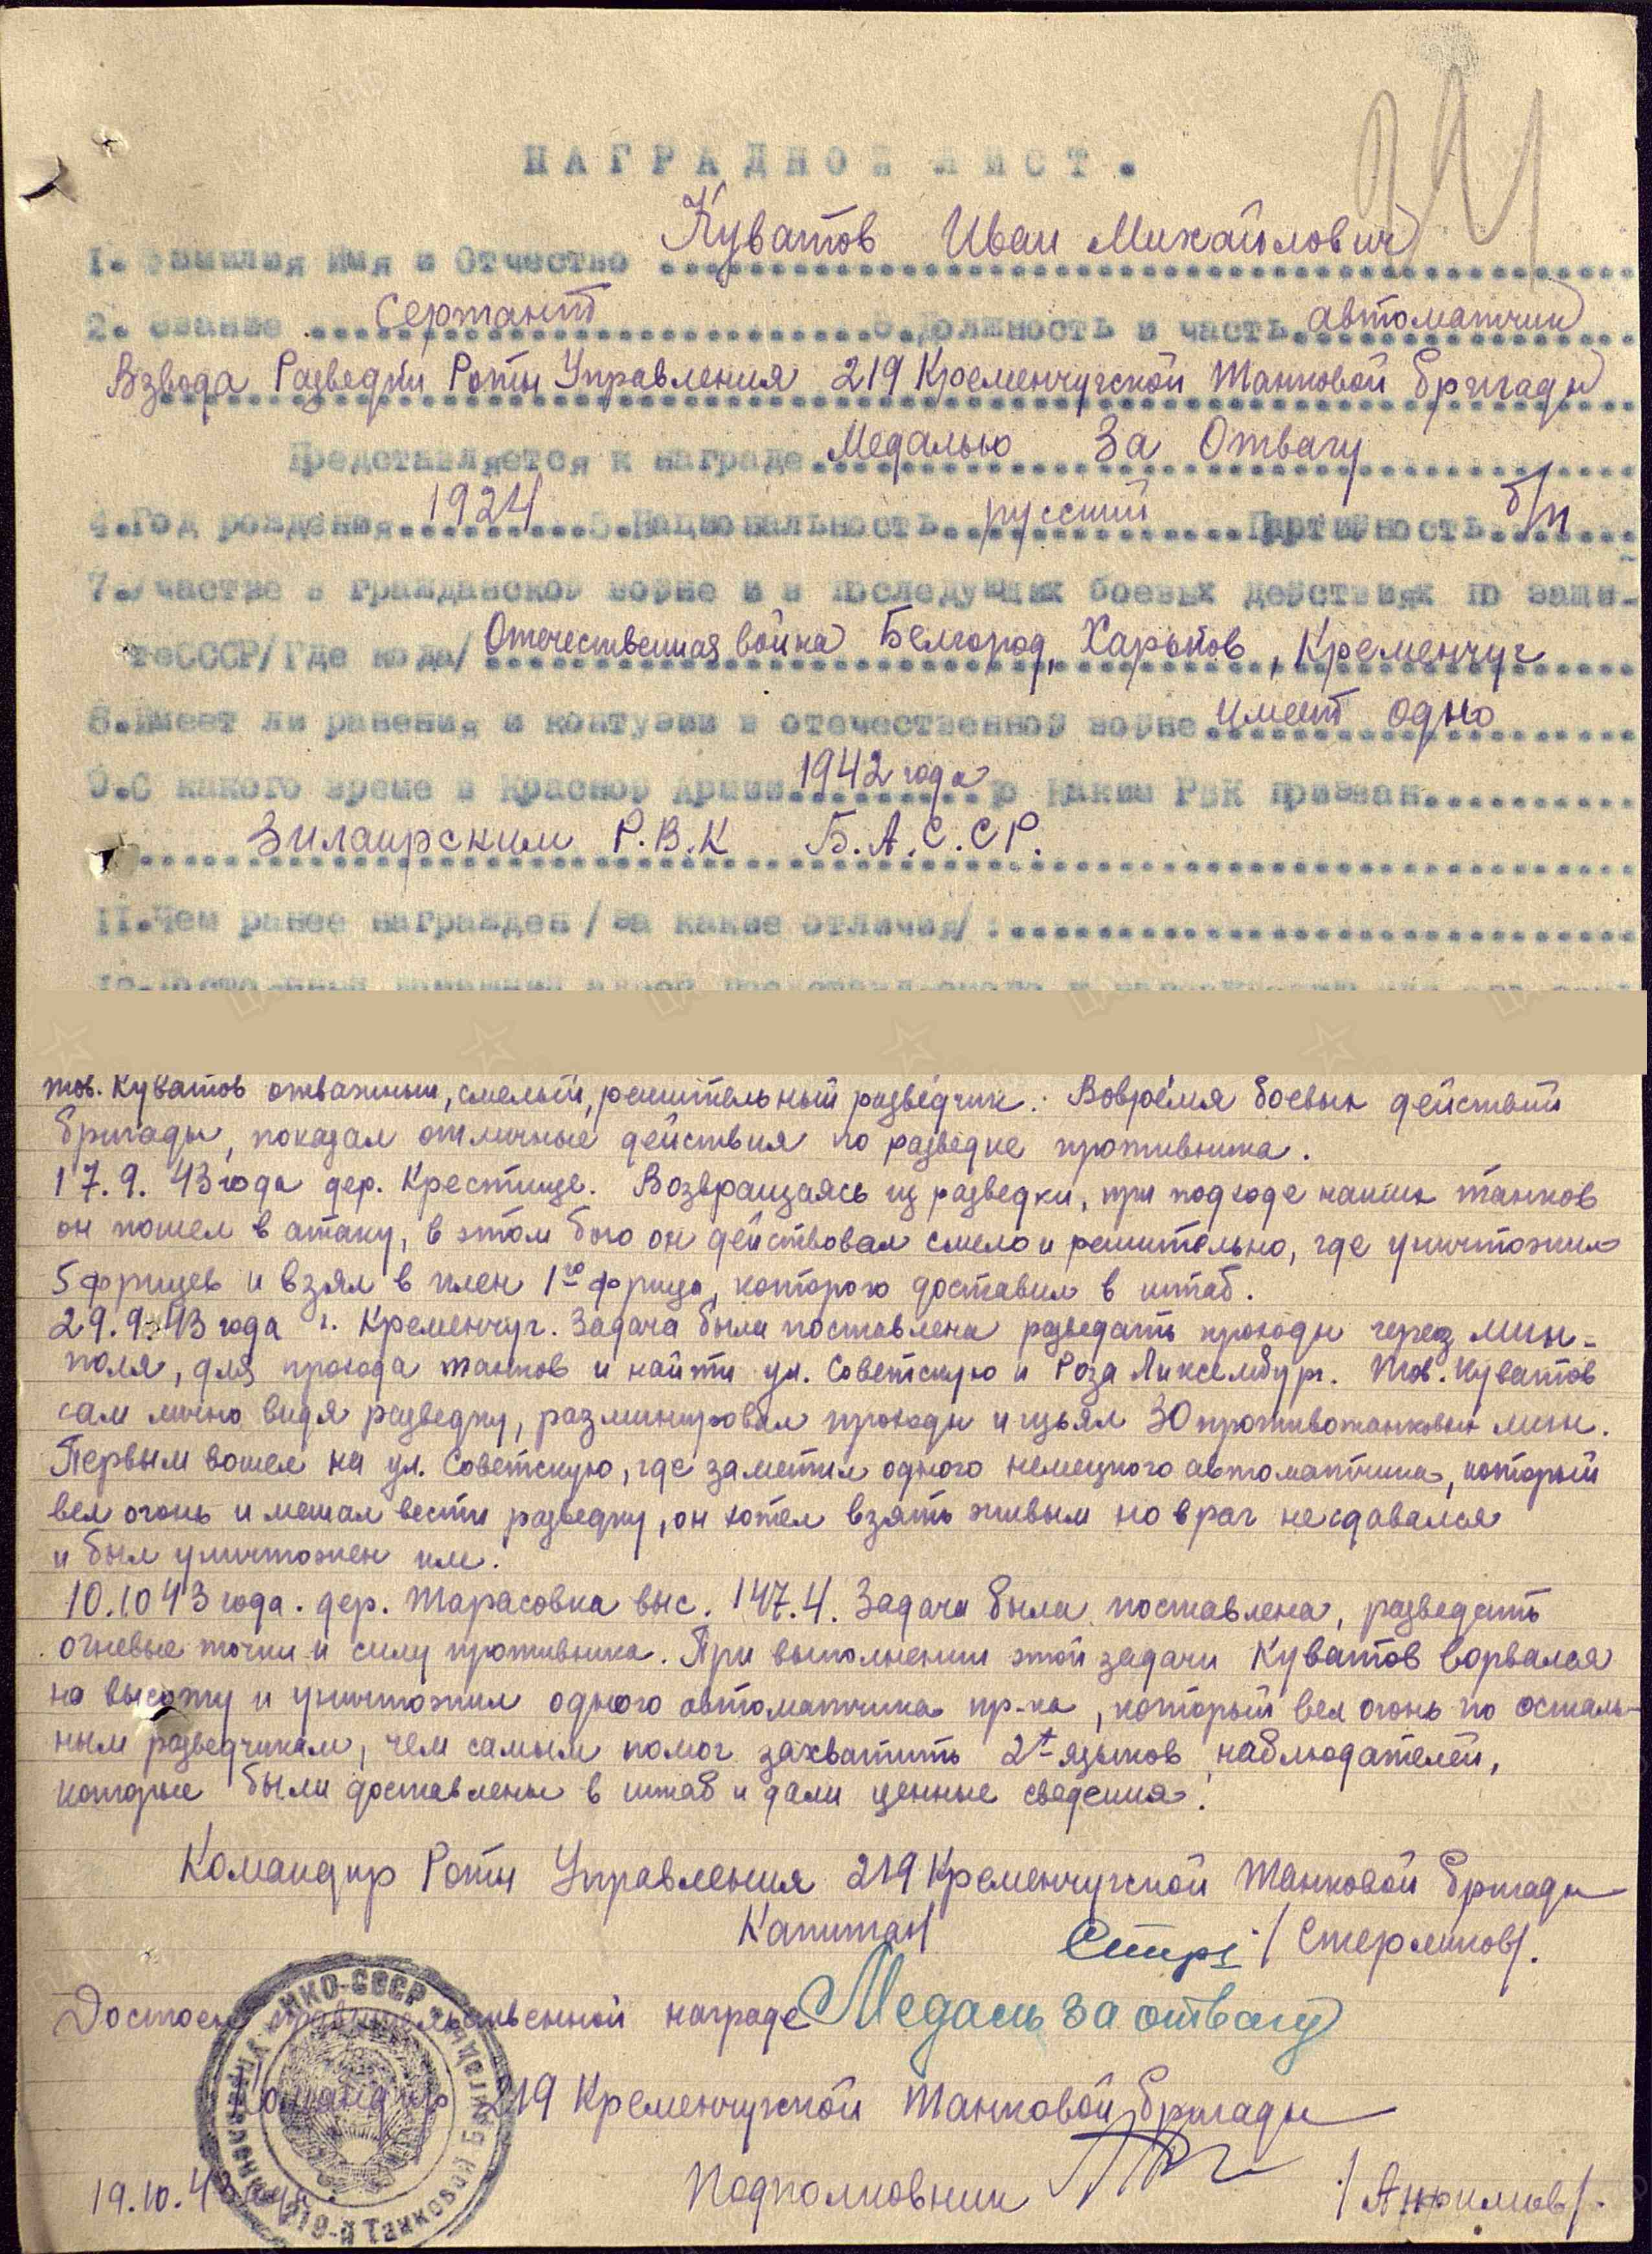 НАГРАДНОЙ ЛИСТ.
1. Фамилия Имя и Отчество Куватов Иван Михайлович
2. Звание Сержант 3. Должность и часть автоматчик
Взвода Разведки Роты Управления 219 Кременчугской Танковой бригады
Представляется к награде Медалью За Отвагу
4. Год рождения 1924 5. Национальность русский Партийность б/п
7. Участие в гражданской войне и в последующих боевых действиях по защи-
те СССР /Где когда/ Отечественная война Белгород, Харьков, Кременчуг
8. Имеет ли ранения и контузии в отечественной войне имеет одно
9. С какого време в Красной Армии 1942 года 10 Каким РВК призван
Зилаирским Р.В.К Б.А.С.СР.
11. Чем ранее награжден /за какие отличия/:
тов. Куватов отважный, смелый, решительный разведчик. Вовремя боевых действий
бригады, показал отличные действия по разведке противника.
17.9.43 года дер. Крестище. Возвращаясь из разведки, при подходе наших танков
он пошел в атаку, в этом бою он действовал смело и решительно, где уничтожил
5 фрицев и взял в плен 1го фрица, которого доставил в штаб.
29.9.43 года г. Кременчуг. Задача была поставлена разведать проходы через мин-
поля, для прохода танков и найти ул. Советскую и Роза Люксембург. Тов. Куватов
сам лично видя разведку, разминировал проходы и изъял 30 противотанковых мин.
Первым вошел на ул. Советскую, где заметил одного немецкого автоматчика, который
вел огонь и мешал вести разведку, он хотел взять живым но враг не сдавался
и был уничтожен им.
10.10 43 года. дер. Тарасовка выс. 147.4. Задача была поставлена, разведать
огневые точки и силу противника. При выполнении этой задачи Куватов ворвался
на высоту и уничтожил одного автоматчика пр-ка, который вел огонь по осталь-
ным разведчикам, чем самым помог захватить 2х языков наблюдателей,
которые были доставлены в штаб и дали ценные сведения.
Командир Роты Управления 219 Кременчугской Танковой бригады
Капитан /Стерликов/.
Достоен правительственной награде Медаль за отвагу
Командир 219 Кременчугской Танковой бригады
19.10.43 Подполковник